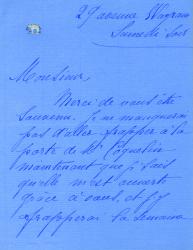 29 avenue Wagram
Samedi soir
Monsieur,
Merci de vous être
souvenu. je ne manquerai
pas d'aller frapper à la
porte de Mr Coquelin
maintenant que je sais
qu'elle m'est ouverte
grâce à vous, et j'y
frapperai la semaine